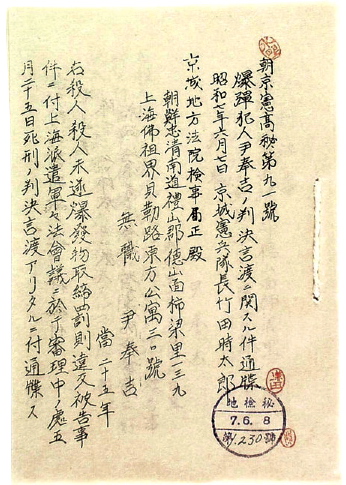 朝京憲高秘第九一號
爆彈犯人尹奉吉ノ判決言渡ニ関スル件通牒
昭和七年六月七日 京城憲兵隊長 竹田時太郎
京城地方法院検事局正殿
朝鮮忠清南道禮山郡德山面柿梁里一三九
上海佛祖界貝勒路東方公寓三〇號
無職 尹奉吉
當二十五年
右殺人殺人未遂爆發物取締罰則違反被告事
件ニ付上海派遣軍々法會議ニ於テ審理中ノ處五
月二十五日死刑ノ判決言渡アリタルニ付通牒ス
地檢秘
7.6.8
第1.230號